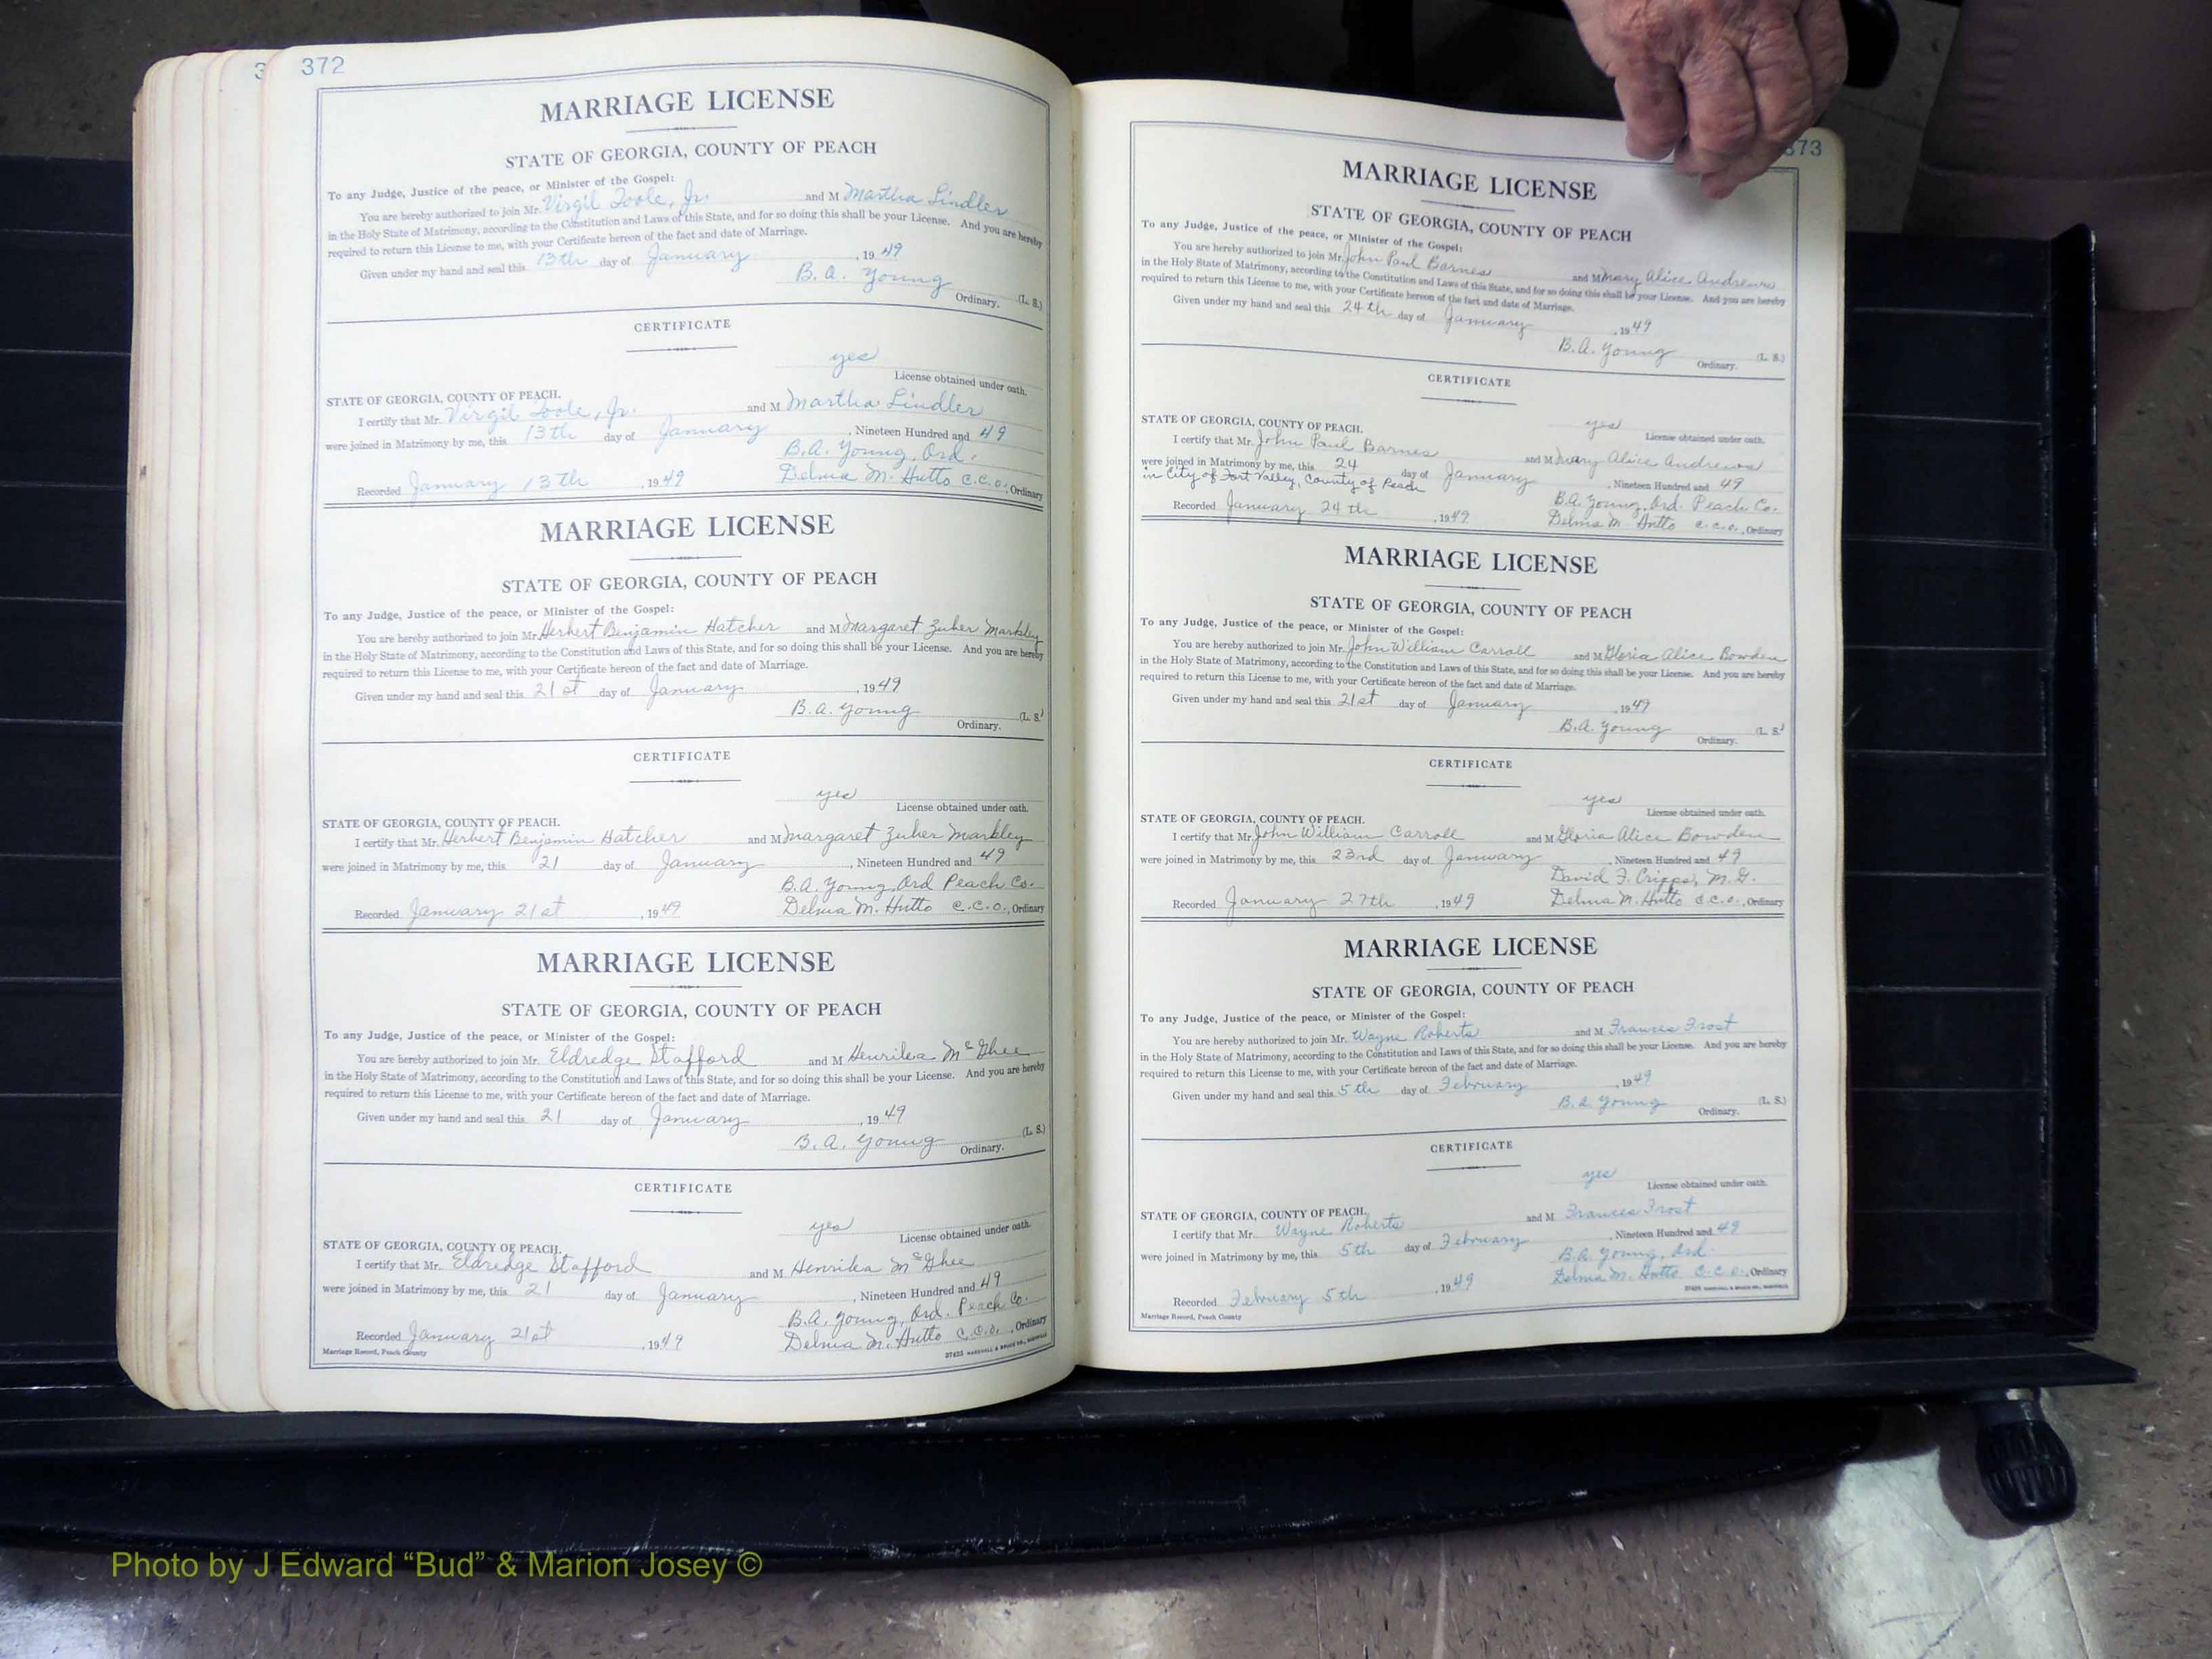 372
MARRIAGE LICENSE
STATE OF GEORGIA, COUNTY OF PEACH
To any Judge, Justice of the peace, or Minister of the Gospel:
You are hereby authorized to join Mr. Virgil Toole, Jr. and M Martha Lindler
in the Holy State of Matrimony, according to the Constitution and Laws of this State, and for so doing this shall be your License. And you are hereby
required to return this License to me, with your Certificate hereon of the fact and date of Marriage.
Given under my hand and seal this 13th day of January, 1949
B. A. Young
Ordinary. (L. S.)
CERTIFICATE
yes
License obtained under oath.
STATE OF GEORGIA, COUNTY OF PEACH.
I certify that Mr. Virgil Toole, Jr. and M Martha Lindler
were joined in Matrimony by me, this 13th day of January, Nineteen Hundred and 49
B.A. Young, Ord.
Recorded January 13th, 1949 Delma M. Hutto C.C.O., Ordinary
MARRIAGE LICENSE
STATE OF GEORGIA, COUNTY OF PEACH
To any Judge, Justice of the peace, or Minister of the Gospel:
You are hereby authorized to join Mr. Herbert Benjamin Hatcher and M Margaret Zuher Markley
in the Holy State of Matrimony, according to the Constitution and Laws of this State, and for so doing this shall be your License. And you are hereby
required to return this License to me, with your Certificate hereon of the fact and date of Marriage.
Given under my hand and seal this 21st day of January, 1949
B.A. Young
Ordinary. (L. S.)
CERTIFICATE
yes
License obtained under oath.
STATE OF GEORGIA, COUNTY OF PEACH.
I certify that Mr. Herbert Benjamin Hatcher and M Margaret Zuher Markley
were joined in Matrimony by me, this 21 day of January, Nineteen Hundred and 49
B.A. Young, Ord Peach Co.
Recorded January 21st, 1949 Delma M. Hutto C.C.O., Ordinary
MARRIAGE LICENSE
STATE OF GEORGIA, COUNTY OF PEACH
To any Judge, Justice of the peace, or Minister of the Gospel:
You are hereby authorized to join Mr. Eldredge Stafford and M Henrika McGhee
in the Holy State of Matrimony, according to the Constitution and Laws of this State, and for so doing this shall be your License. And you are hereby
required to return this License to me, with your Certificate hereon of the fact and date of Marriage.
Given under my hand and seal this 21 day of January, 1949
B. A. Young
Ordinary. (L. S.)
CERTIFICATE
yes
License obtained under oath.
STATE OF GEORGIA, COUNTY OF PEACH.
I certify that Mr. Eldredge Stafford and M Henrika McGhee
were joined in Matrimony by me, this 21 day of January, Nineteen Hundred and 49
B.A. Young, Ord. Peach Co.
Recorded January 21st, 1949 Delma M. Hutto C.C.O., Ordinary
Marriage Record, Peach County 37425 MARSHALL & BRUCE CO., NASHVILLE
373
MARRIAGE LICENSE
STATE OF GEORGIA, COUNTY OF PEACH
To any Judge, Justice of the peace, or Minister of the Gospel:
You are hereby authorized to join Mr. John Paul Barnes and M Mary Alice Andrews
in the Holy State of Matrimony, according to the Constitution and Laws of this State, and for so doing this shall be your License. And you are hereby
required to return this License to me, with your Certificate hereon of the fact and date of Marriage.
Given under my hand and seal this 24th day of January, 1949
B.A. Young
Ordinary. (L. S.)
CERTIFICATE
yes
License obtained under oath.
STATE OF GEORGIA, COUNTY OF PEACH.
I certify that Mr. John Paul Barnes and M Mary Alice Andrews
were joined in Matrimony by me, this 24 day of January, Nineteen Hundred and 49
in City of Fort Valley, County of Peach
B.A. Young, Ord. Peach Co.
Recorded January 24th, 1949 Delma M. Hutto C.C.O., Ordinary
MARRIAGE LICENSE
STATE OF GEORGIA, COUNTY OF PEACH
To any Judge, Justice of the peace, or Minister of the Gospel:
You are hereby authorized to join Mr. John William Carroll and M Gloria Alice Bowden
in the Holy State of Matrimony, according to the Constitution and Laws of this State, and for so doing this shall be your License. And you are hereby
required to return this License to me, with your Certificate hereon of the fact and date of Marriage.
Given under my hand and seal this 21st day of January, 1949
B.A. Young
Ordinary. (L. S.)
CERTIFICATE
yes
License obtained under oath.
STATE OF GEORGIA, COUNTY OF PEACH.
I certify that Mr. John William Carroll and M Gloria Alice Bowden
were joined in Matrimony by me, this 23rd day of January, Nineteen Hundred and 49
David F. Cripps, M.G.
Recorded January 27th, 1949 Delma M. Hutto C.C.O., Ordinary
MARRIAGE LICENSE
STATE OF GEORGIA, COUNTY OF PEACH
To any Judge, Justice of the peace, or Minister of the Gospel:
You are hereby authorized to join Mr. Wayne Roberts and M Frances Frost
in the Holy State of Matrimony, according to the Constitution and Laws of this State, and for so doing this shall be your License. And you are hereby
required to return this License to me, with your Certificate hereon of the fact and date of Marriage.
Given under my hand and seal this 5th day of February, 1949
B.A. Young
Ordinary. (L. S.)
CERTIFICATE
yes
License obtained under oath.
STATE OF GEORGIA, COUNTY OF PEACH.
I certify that Mr. Wayne Roberts and M Frances Frost
were joined in Matrimony by me, this 5th day of February, Nineteen Hundred and 49
B.A. Young, Ord.
Recorded February 5th, 1949 Delma M. Hutto C.C.O., Ordinary
Marriage Record, Peach County 37425 MARSHALL & BRUCE CO., NASHVILLE
Photo by J Edward “Bud” & Marion Josey ©